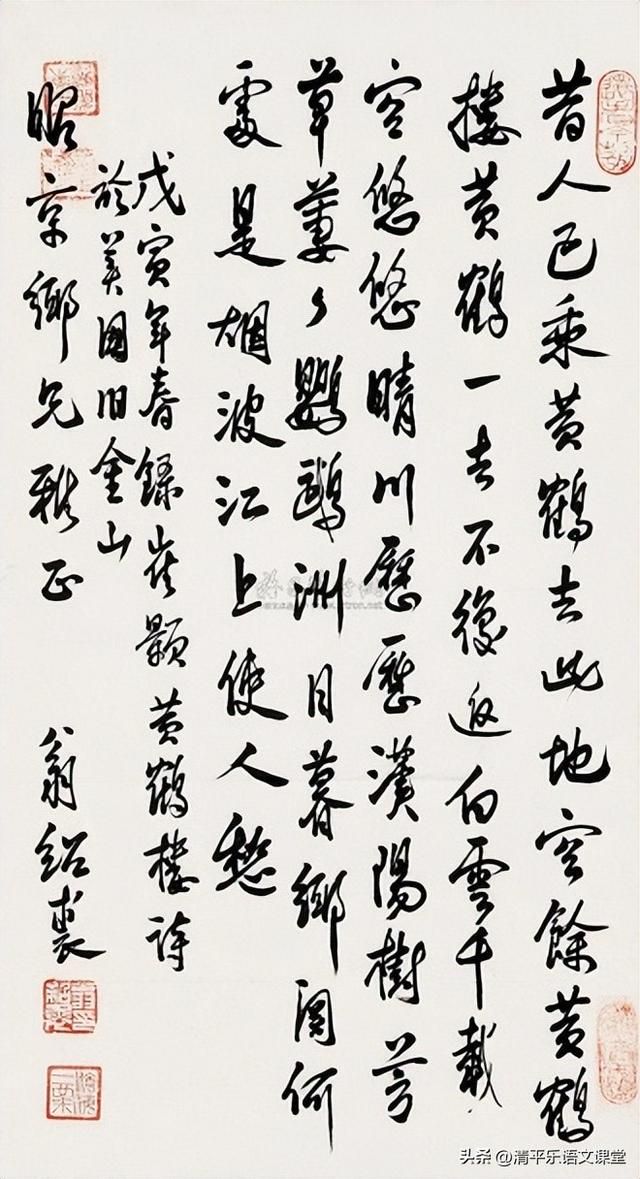 昔人已乘黄鶴去此地空餘黄鶴
楼黄鶴一去不復返白雲千載
空悠悠晴川歷歷漢陽樹芳
草萋々鸚鵡洲日暮鄉関何
處是烟波江上使人愁
戊寅年春録崔顥黄鶴楼詩
於美國旧金山
昭京鄉兄雅正
翁紹裘
头条 @清平乐语文课堂